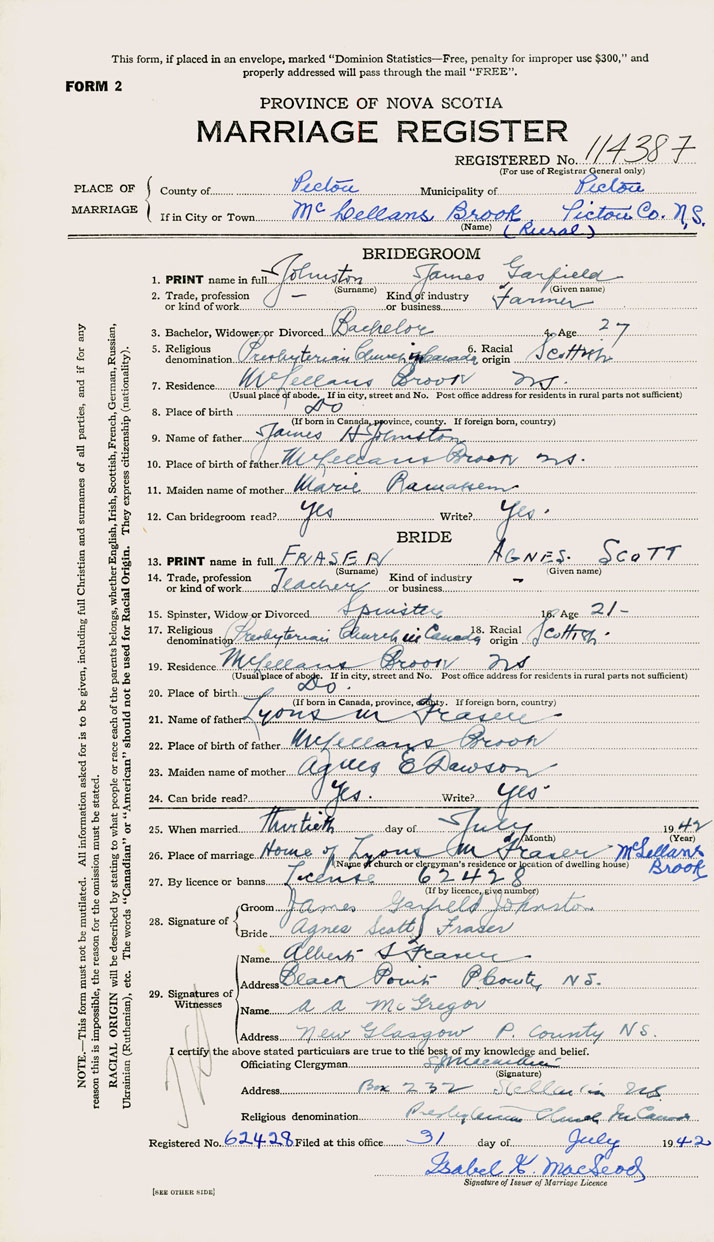 This form, if placed in an envelope, marked "Dominion Statistics—Free, penalty for improper use $300," and
properly addressed will pass through the mail "FREE".
FORM 2
PROVINCE OF NOVA SCOTIA
MARRIAGE REGISTER
REGISTERED No. 114387
(For use of Registrar General only)
PLACE OF MARRIAGE
County of Pictou Municipality of Pictou
If in City or Town McLellans Brook Pictou Co. N.S.
(Name) (Rural)
BRIDEGROOM
1. PRINT name in full Johnston James Garfield
(Surname) (Given name)
2. Trade, profession or kind of work — Kind of industry or business Farmer
3. Bachelor, Widower or Divorced Bachelor 4. Age 27
5. Religious denomination Presbyterian Church in Canada 6. Racial origin Scottish
7. Residence McLellans Brook NS.
(Usual place of abode. If in city, street and No. Post office address for residents in rural parts not sufficient)
8. Place of birth Do
(If born in Canada, province, county. If foreign born, country)
9. Name of father James H Johnston
10. Place of birth of father McLellans Brook NS.
11. Maiden name of mother Marie
12. Can bridegroom read? Yes Write? Yes.
BRIDE
13. PRINT name in full FRASER AGNES SCOTT
(Surname) (Given name)
14. Trade, profession or kind of work Teacher Kind of industry or business –
15. Spinster, Widow or Divorced Spinster 16. Age 21–
17. Religious denomination Presbyterian Church in Canada 18. Racial origin Scottish.
19. Residence McLellans Brook NS
(Usual place of abode. If in city, street and No. Post office address for residents in rural parts not sufficient)
20. Place of birth Do.
(If born in Canada, province, county. If foreign born, country)
21. Name of father Lyons M Fraser
22. Place of birth of father McLellans Brook
23. Maiden name of mother Agnes E Dawson
24. Can bride read? Yes. Write? Yes
25. When married thirtieth day of July 1942
(Month) (Year)
26. Place of marriage Home of Lyons M Fraser McLellans Brook
(Name of church or clergyman's residence or location of dwelling house)
27. By licence or banns License 62428
(If by licence, give number)
28. Signature of
Groom James Garfield Johnston
Bride Agnes Scott Fraser
29. Signatures of Witnesses
Name Albert S Fraser
Address Black Point P County NS.
Name A A McGregor
Address New Glasgow P. County NS.
I certify the above stated particulars are true to the best of my knowledge and belief.
Officiating Clergyman
(Signature)
Address Box 232 Stellarton NS
Religious denomination Presbyterian Church in Canada
Registered No. 62428 Filed at this office 31 day of July 1942
Isabel K. MacLeod
Signature of Issuer of Marriage Licence
[SEE OTHER SIDE]
NOTE.—This form must not be mutilated. All information asked for is to be given, including full Christian and surnames of all parties, and if for any
reason this is impossible, the reason for the omission must be stated.
RACIAL ORIGIN will be described by stating to what people or race each of the parents belongs, whether English, Irish, Scottish, French, German, Russian,
Ukrainian (Ruthenian), etc. The words "Canadian" or "American" should not be used for Racial Origin. They express citizenship (nationality).